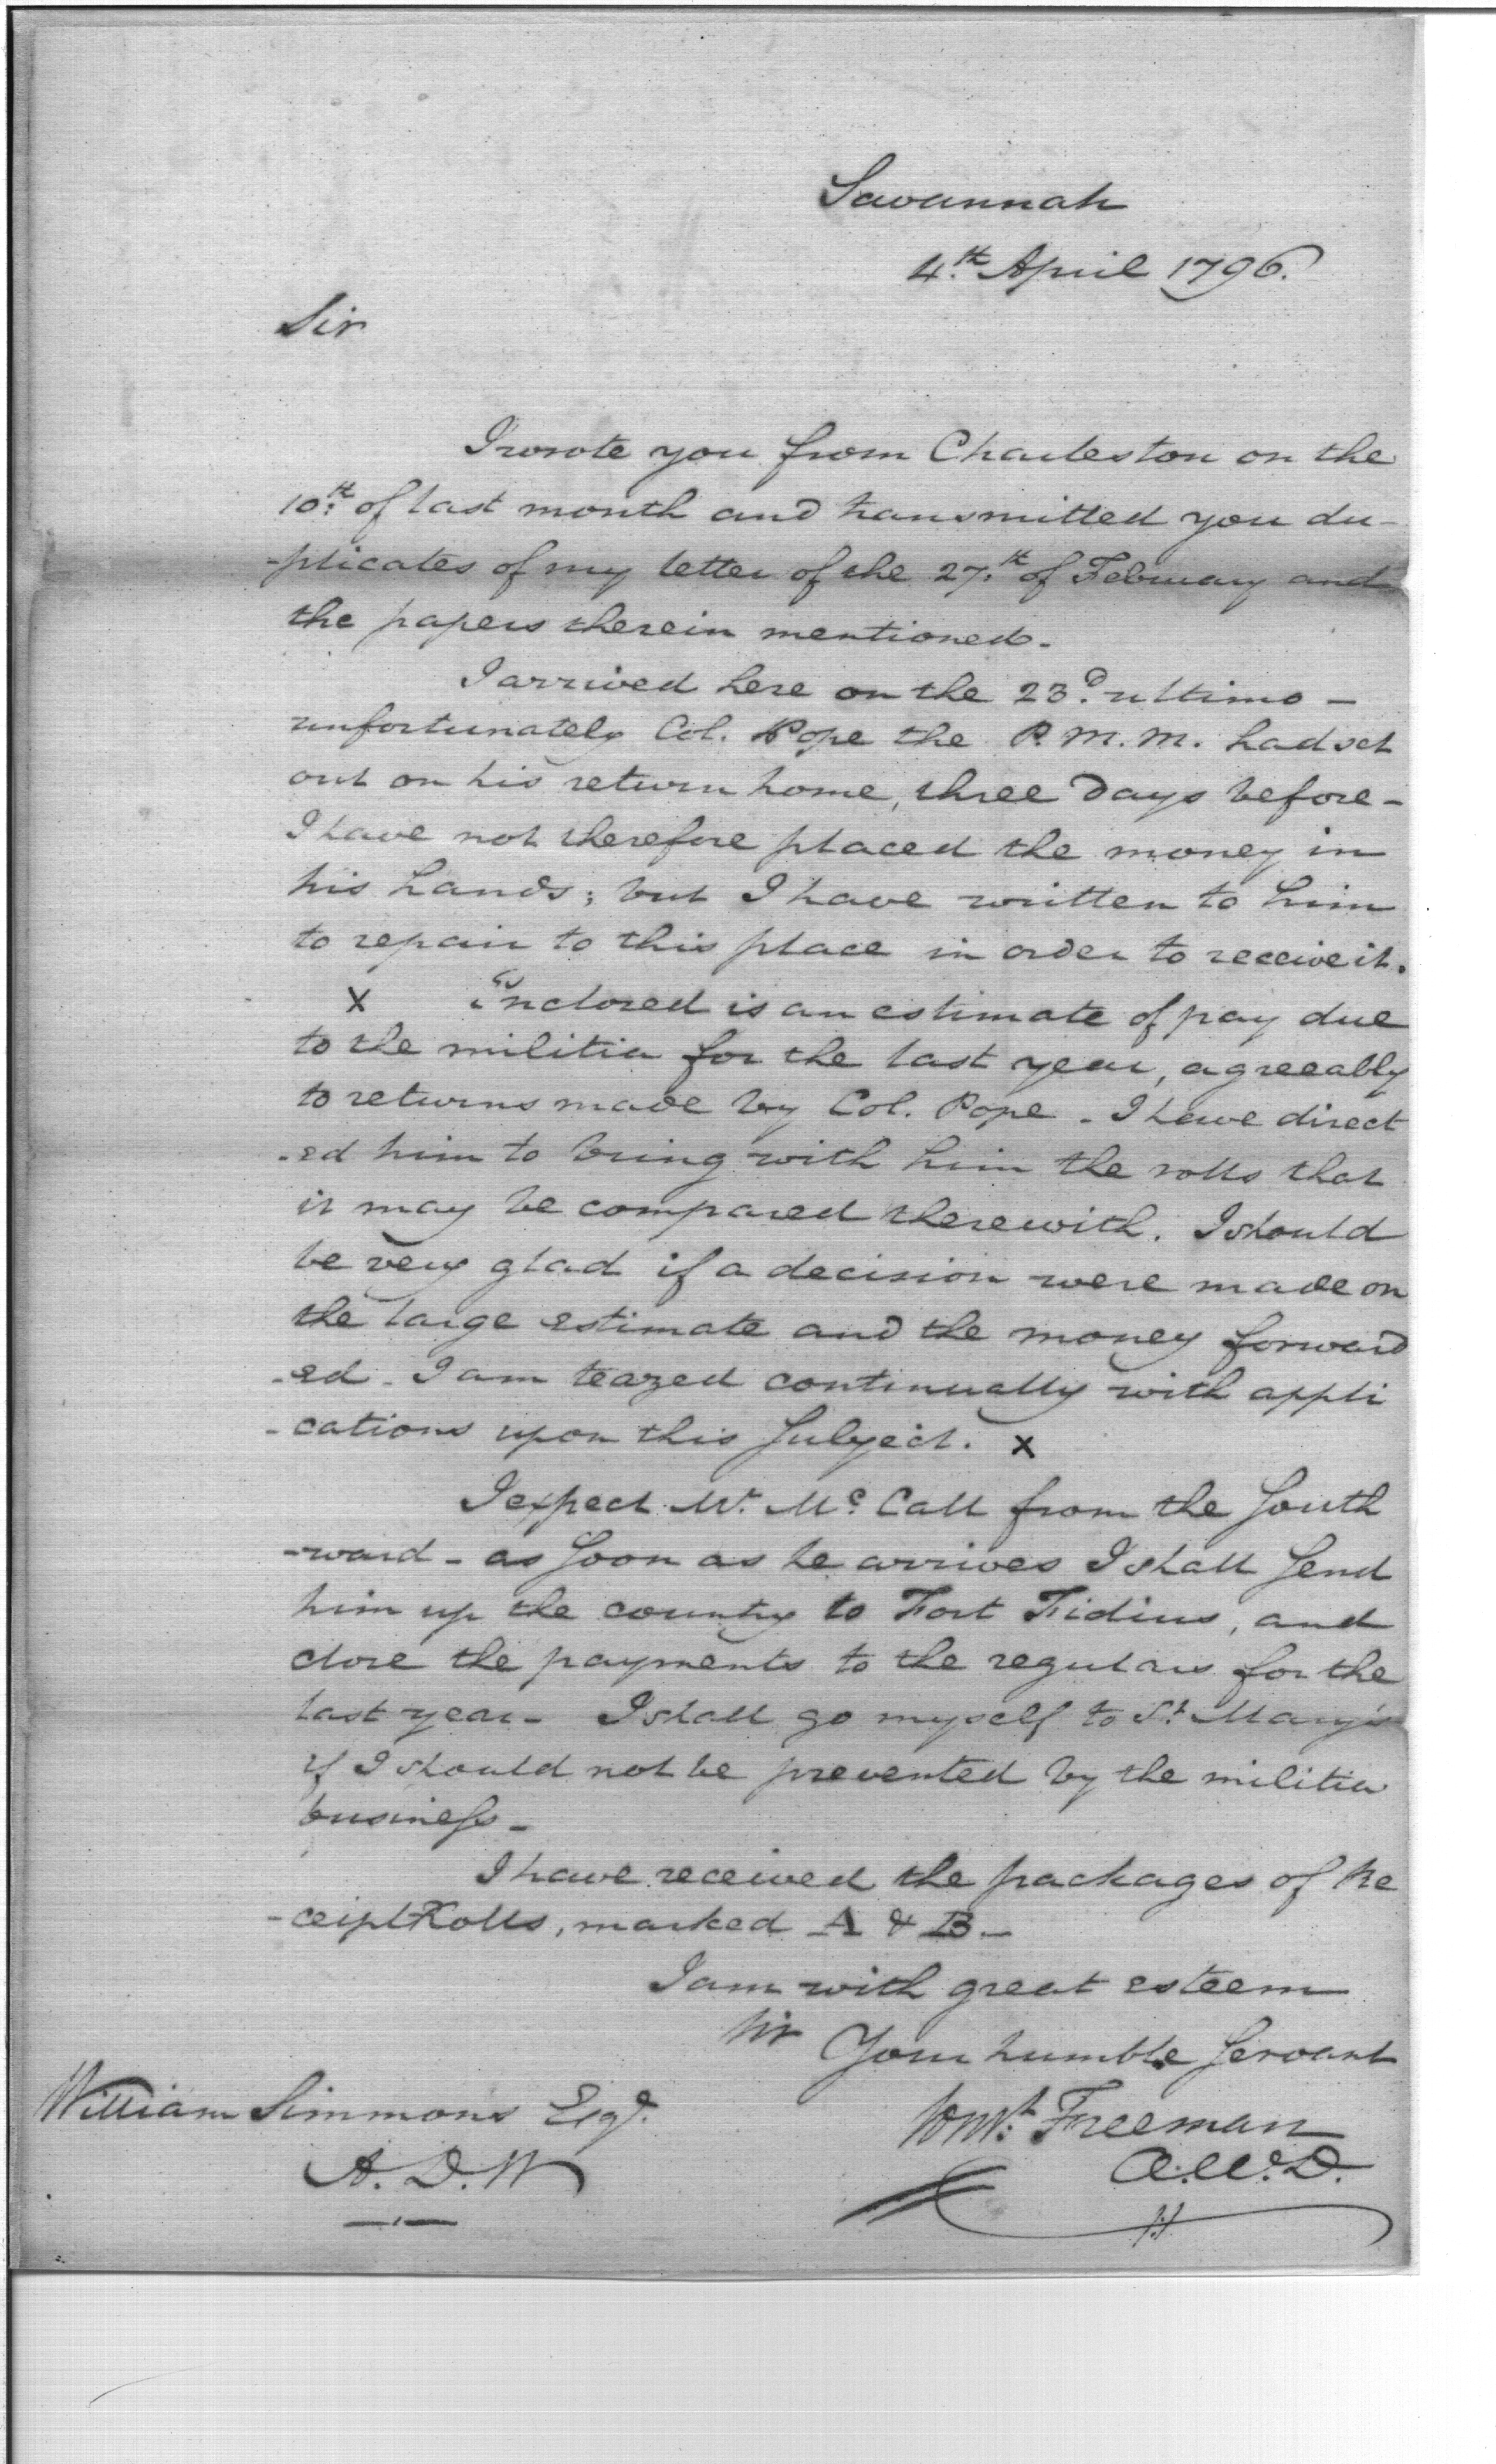 Savannah
4th April 1796.
Sir
I wrote you from Charleston on the
10th of last month and transmitted you du-
-plicates of my letter of the 27th of February and
the papers therein mentioned.
I arrived here on the 23d ultimo -
unfortunately Col. Pope the P. M. M. had set
out on his return home, three days before -
I have not therefore placed the money in
his hands; but I have written to him
to repair to this place in order to receive it.
x Enclosed is an estimate of pay due
to the militia for the last year, agreeably
to returns made by Col. Pope - I have direct
-ed him to bring with him the rolls that
it may be compared therewith. I should
be very glad if a decision were made on
the large estimate and the money forward
-ed - I am teazed continually with appli
-cations upon this subject. x
I expect Mr. McCall from the South
-ward - as soon as he arrives I shall send
him up the country to Fort Fidius, and
close the payments to the regulars for the
last year - I shall go myself to St. Mary's
if I should not be prevented by the militia
business -
I have received the packages of Re
-ceipt Rolls, marked A & B -
I am with great esteem
Sir Your humble Servant
William Simmons Esqr.
Const: Freeman
A. D. W
A.W.D.